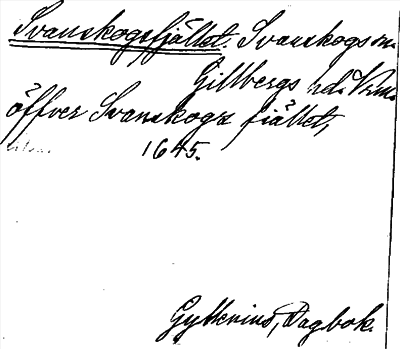 Svanskogsfjället. Svanskogs sn.
Gillbergs hd. Vrml.
öffver Svanskogz fiället,
1645.
Gyllenius, Dagbok.